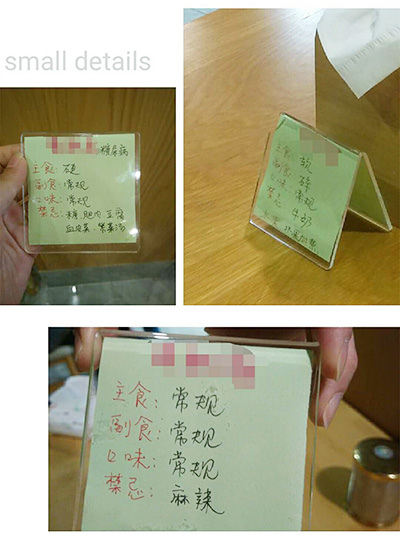 small details
糖尿病
主食：硬
副食：常规
口味：常规
禁忌：糖、肥肉 豆腐
主食：软
副食：碎
口味：常规
禁忌：牛奶
主食：常规
副食：常规
口味：常规
禁忌：麻辣